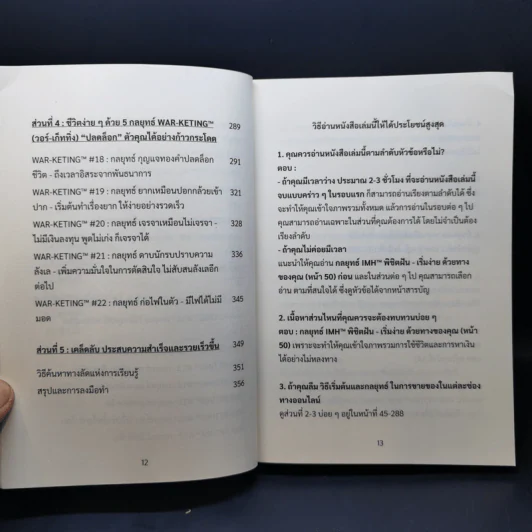 ส่วนที่ 4 : ชีวิตง่าย ๆ ด้วย 5 กลยุทธ์ WAR-KETING™ 289
(วอร์-เก็ทติ้ง) “ปลดล็อก” ตัวคุณได้อย่างก้าวกระโดด
WAR-KETING™ #18 : กลยุทธ์ กุญแจทองคำปลดล็อก 291
ชีวิต - ถึงเวลาอิสระจากพันธนาการ
WAR-KETING™ #19 : กลยุทธ์ ยากเหมือนปอกกล้วยเข้า 321
ปาก - เริ่มต้นทำเรื่องยาก ให้ง่ายอย่างรวดเร็ว
WAR-KETING™ #20 : กลยุทธ์ เจรจาเหมือนไม่เจรจา - 328
ไม่มีเงินลงทุน พูดไม่เก่ง ก็เจรจาได้
WAR-KETING™ #21 : กลยุทธ์ ดาบนักรบปราบความ 336
ลังเล - เพิ่มความมั่นใจในการตัดสินใจ ไม่สับสนลังเลอีก
ต่อไป
WAR-KETING™ #22 : กลยุทธ์ ก่อไฟในตัว - มีไฟได้ไม่มี 345
มอด
ส่วนที่ 5 : เคล็ดลับ ประสบความสำเร็จและรวยเร็วขึ้น 349
วิธีค้นหาทางลัดแห่งการเรียนรู้ 351
สรุปและการลงมือทำ 356
12
วิธีอ่านหนังสือเล่มนี้ให้ได้ประโยชน์สูงสุด
1. คุณควรอ่านหนังสือเล่มนี้ตามลำดับหัวข้อหรือไม่?
ตอบ :
- ถ้าคุณมีเวลาว่าง ประมาณ 2-3 ชั่วโมง ที่จะอ่านหนังสือเล่มนี้
จบแบบคร่าว ๆ ในรอบแรก ก็สามารถอ่านเรียงตามลำดับได้ ซึ่ง
จะทำให้คุณเข้าใจภาพรวมทั้งหมด แล้วการอ่านในรอบต่อ ๆ ไป
คุณสามารถอ่านเฉพาะในส่วนที่คุณต้องการได้ โดยไม่จำเป็นต้อง
เรียงลำดับ
- ถ้าคุณไม่ค่อยมีเวลา
แนะนำให้คุณอ่าน กลยุทธ์ IMH™ พิชิตฝัน - เริ่มง่าย ด้วยทาง
ของคุณ (หน้า 50) ก่อน และในส่วนต่อ ๆ ไป คุณสามารถเลือก
อ่าน ตามที่สนใจได้ ซึ่งดูหัวข้อได้จากหน้าสารบัญ
2. เนื้อหาส่วนไหนที่คุณควรจะต้องทบทวนบ่อย ๆ
ตอบ : กลยุทธ์ IMH™ พิชิตฝัน - เริ่มง่าย ด้วยทางของคุณ (หน้า
50) เพราะจะทำให้คุณเข้าใจภาพรวมการใช้ชีวิตและการหาเงิน
ได้อย่างไม่หลงทาง
3. ถ้าคุณลืม วิธีเริ่มต้นและกลยุทธ์ ในการขายของในแต่ละช่อง
ทางออนไลน์
ดูส่วนที่ 2-3 บ่อย ๆ อยู่ในหน้าที่ 45-288
13